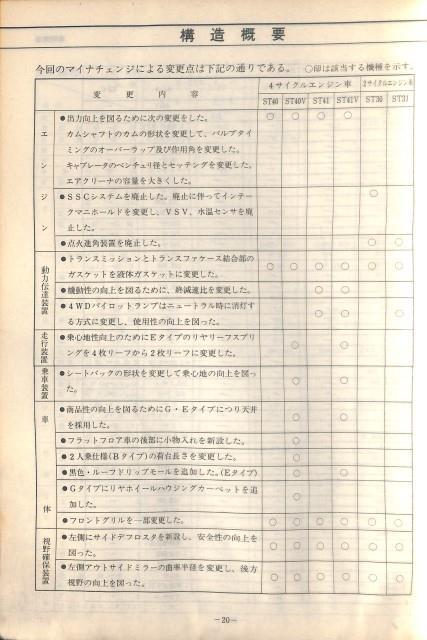 構造概要
今回のマイナチェンジによる変更点は下記の通りである。 ○印は該当する機種を示す。
変更内容 4サイクルエンジン車 2サイクルエンジン車
ST40 ST40V ST41 ST41V ST30 ST31
エンジン
●出力向上を図るために次の変更をした。 ○ ○ ○ ○
カムシャフトのカムの形状を変更して、バルブタイ
ミングのオーバーラップ及び作用角を変更した。
キャブレータのベンチュリ径とセッテングを変更した。
エアクリーナの容量を大きくした。
●SSCシステムを廃止した。廃止に伴ってインテー ○
クマニホールドを変更し、VSV、水温センサを廃
止した。
●点火進角装置を廃止した。 ○ ○
動力伝達装置
●トランスミッションとトランスファケース結合部の ○ ○ ○ ○ ○ ○
ガスケットを液体ガスケットに変更した。
●機動性の向上を図るために、終減速比を変更した。 ○ ○
●4WDパイロットランプはニュートラル時に消灯す ○ ○ ○
る方式に変更し、使用性の向上を図った。
走行装置
●乗心地性向上のためにEタイプのリヤリーフスプリ ○ ○
ングを4枚リーフから2枚リーフに変更した。
乗車装置
●シートバックの形状を変更して乗心地の向上を図っ ○ ○
た。
車体
●商品性の向上を図るためにG・Eタイプにつり天井 ○ ○
を採用した。
●フラットフロア車の後部に小物入れを新設した。 ○
●2人乗仕様(Bタイプ)の荷台長さを変更した。 ○
●黒色・ルーフドリップモールを追加した。(Eタイプ) ○ ○
●Gタイプにリヤホイールハウジングカーペットを追 ○
加した。
●フロントグリルを一部変更した。 ○ ○ ○ ○ ○ ○
視野確保装置
●左側にサイドデフロスタを新設し、安全性の向上を ○ ○ ○ ○ ○ ○
図った。
●左側アウトサイドミラーの曲率半径を変更し、後方 ○ ○ ○ ○ ○ ○
視野の向上を図った。
—20—